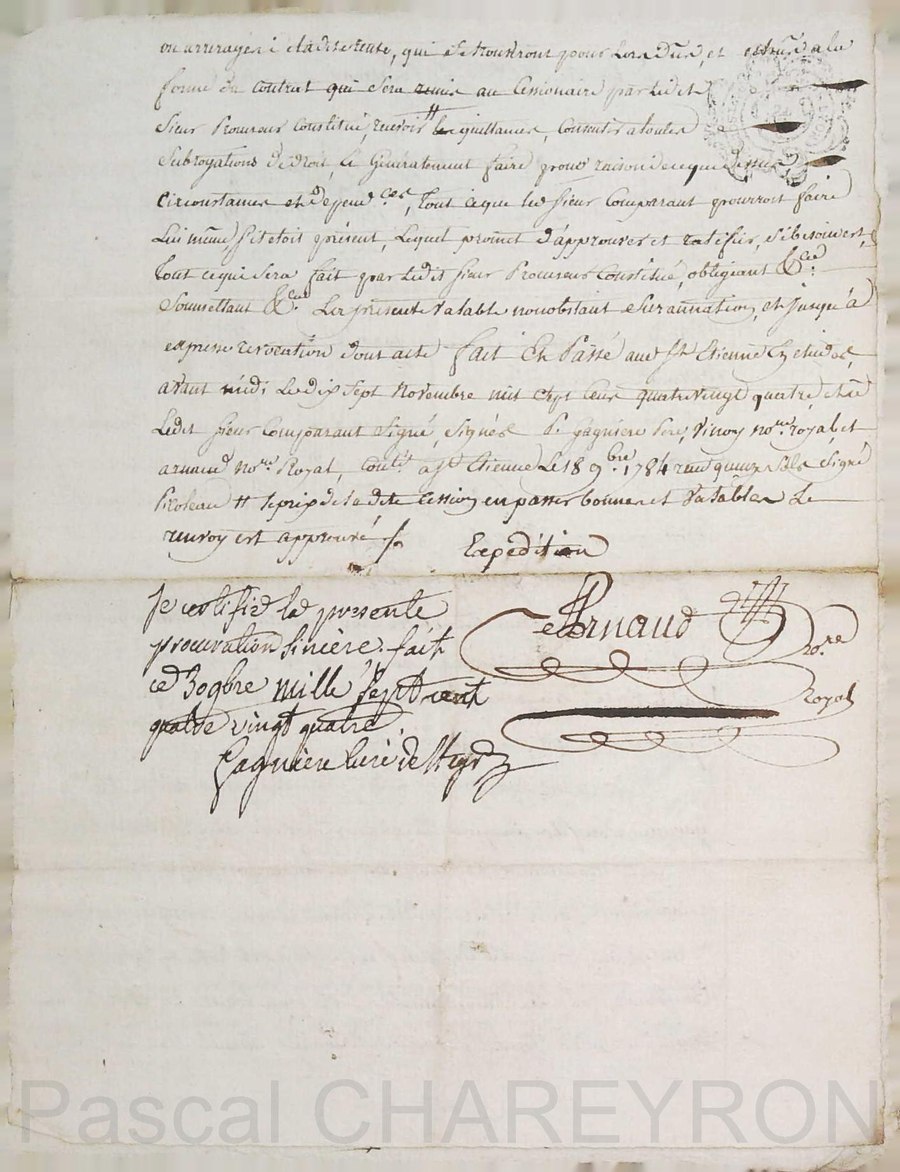 ou arrerages de ladite rente, qui se trouveront pour lors dues, et estre a la
forme du contrat qui sera remis au cessionaire par ledit
sieur Procureur Constitué, recevoir # les quittances, consentir a toutes
subrogations de droit, Et Generalement faire pour raison de ce que dessus
circonstances et dependces, tout ce que led sieur Comparant pourroit faire
lui meme s'il etoit présent, lequel promet d'approuver et ratifier, si besoin est,
tout ce qui sera fait par ledit sieur Procureur Constitué, obligeant &ca
soumettant &ca Les presentes valable nonobstant surannation, et jusqu'à
expresse revocation dont acte fait Et Passé aud St Etienne Ez etudes,
avant midi Le dix sept Novembre mil sept cens quatre vingt quatre, et a
Ledit sieur Comparant signé, signés P. Gagniere Pere, Vinoy nore. royal, et
arnaud nore Royal, Contlé a St Etienne Le 18 9bre. 1784 reçu quinze sols signé
# le prix de la dite cession en passer bonnes et valables Le
renvoy est approuvé
Expédition
Je certifie la presente
procuration sincère. fait
ce 30 9bre mille sept cent
quatre vingt quatre
Gagniere
Arnaud
No.re
Royal
Pascal CHAREYRON